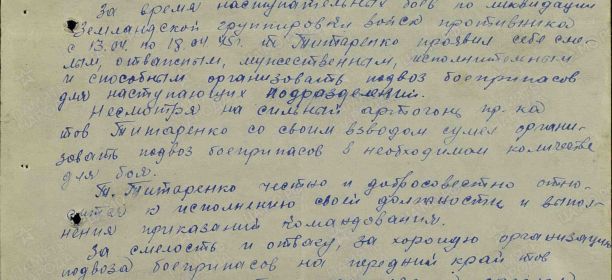 За время наступательных боев по ликвидации
Земландской группировки войск противника
с 13.04 по 18.04 45г. т Титаренко проявил себя сме-
лым, отважным, мужественным, исполнительным
и способным организовать подвоз боеприпасов
для наступающих подразделений.
Несмотря на сильный артогонь пр-ка
тов Титаренко со своим взводом сумел органи-
зовать подвоз боеприпасов в необходимом количестве
для боя.
Т. Титаренко честно и добросовестно отно-
сится к исполнению своей должности и выпол-
нения приказаний командования.
За смелость и отвагу, за хорошую организацию
подвоза боеприпасов на передний край тов